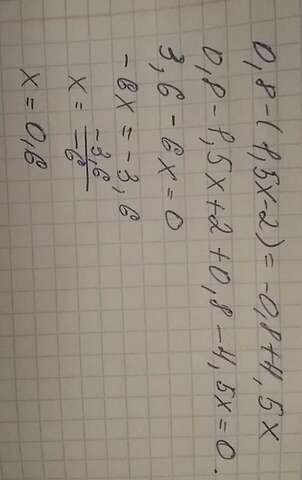 0,8-(1,5x-2)=-0,8+4,5x
0,8-1,5x+2+0,8-4,5x=0.
3,6-6x=0
-6x=-3,6
x=-3,6/-6
x=0,6